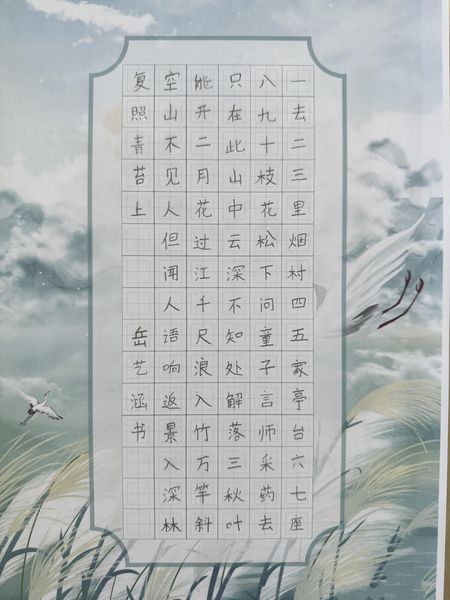 一去二三里烟村四五家亭台六七座
八九十枝花松下问童子言师采药去
只在此山中云深不知处解落三秋叶
能开二月花过江千尺浪入竹万竿斜
空山不见人但闻人语响返景入深林
复照青苔上 岳艺涵书